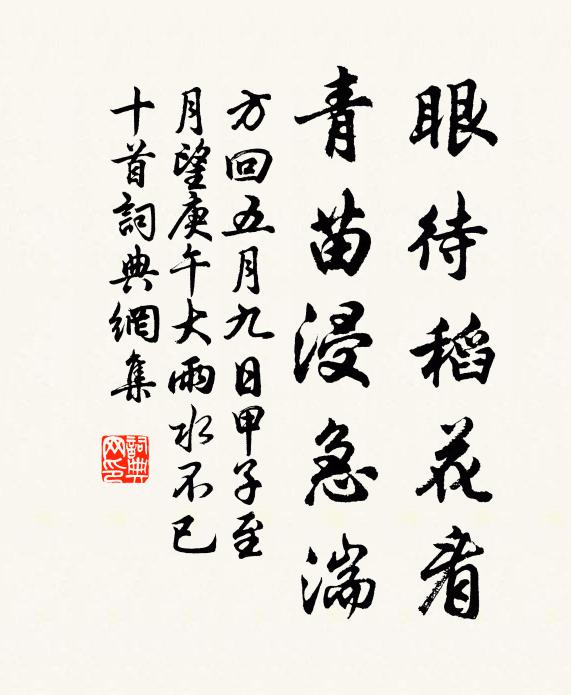 眼待稻花者
青苗浸急湍
方回五月九日甲子至
月望庚午大雨水不已
十首詞典網集
詞典
网印